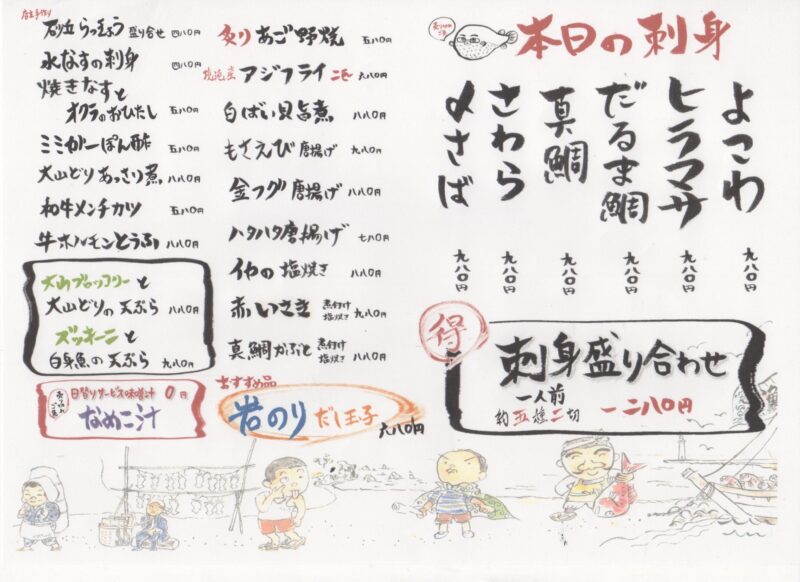 売り切れ
ご免
本日の刺身
よこわ 九八〇円
ヒラマサ 九八〇円
だるま鯛 九八〇円
真鯛 九八〇円
さわら 九八〇円
〆さば 九八〇円
得
刺身盛り合わせ
一人前
約五種二切
一二八〇円
炙りあご野焼 五八〇円
境港産 アジフライ 二匹 六八〇円
白ばい貝旨煮 八八〇円
もさえび唐揚げ 九八〇円
金フグ唐揚げ 八八〇円
ハタハタ唐揚げ 七八〇円
イカの塩焼き 八八〇円
赤いさき 煮付け
塩焼き 九八〇円
真鯛かぶと 煮付け
塩焼き 八八〇円
おすすめ品
岩のりだし玉子 六八〇円
店主手作り
砂丘らっきょう 盛り合せ 四八〇円
水なすの刺身 四八〇円
焼きなすと
オクラのおひたし 五八〇円
ミミガーぽん酢 五八〇円
大山どりあっさり煮 八八〇円
和牛メンチカツ 五八〇円
牛ホルモンとうふ 八八〇円
大山ブロッコリーと
大山どりの天ぷら 八八〇円
ズッキーニと
白身魚の天ぷら 九八〇円
売り切れ
ご免
日替りサービス味噌汁 0円
なめこ汁